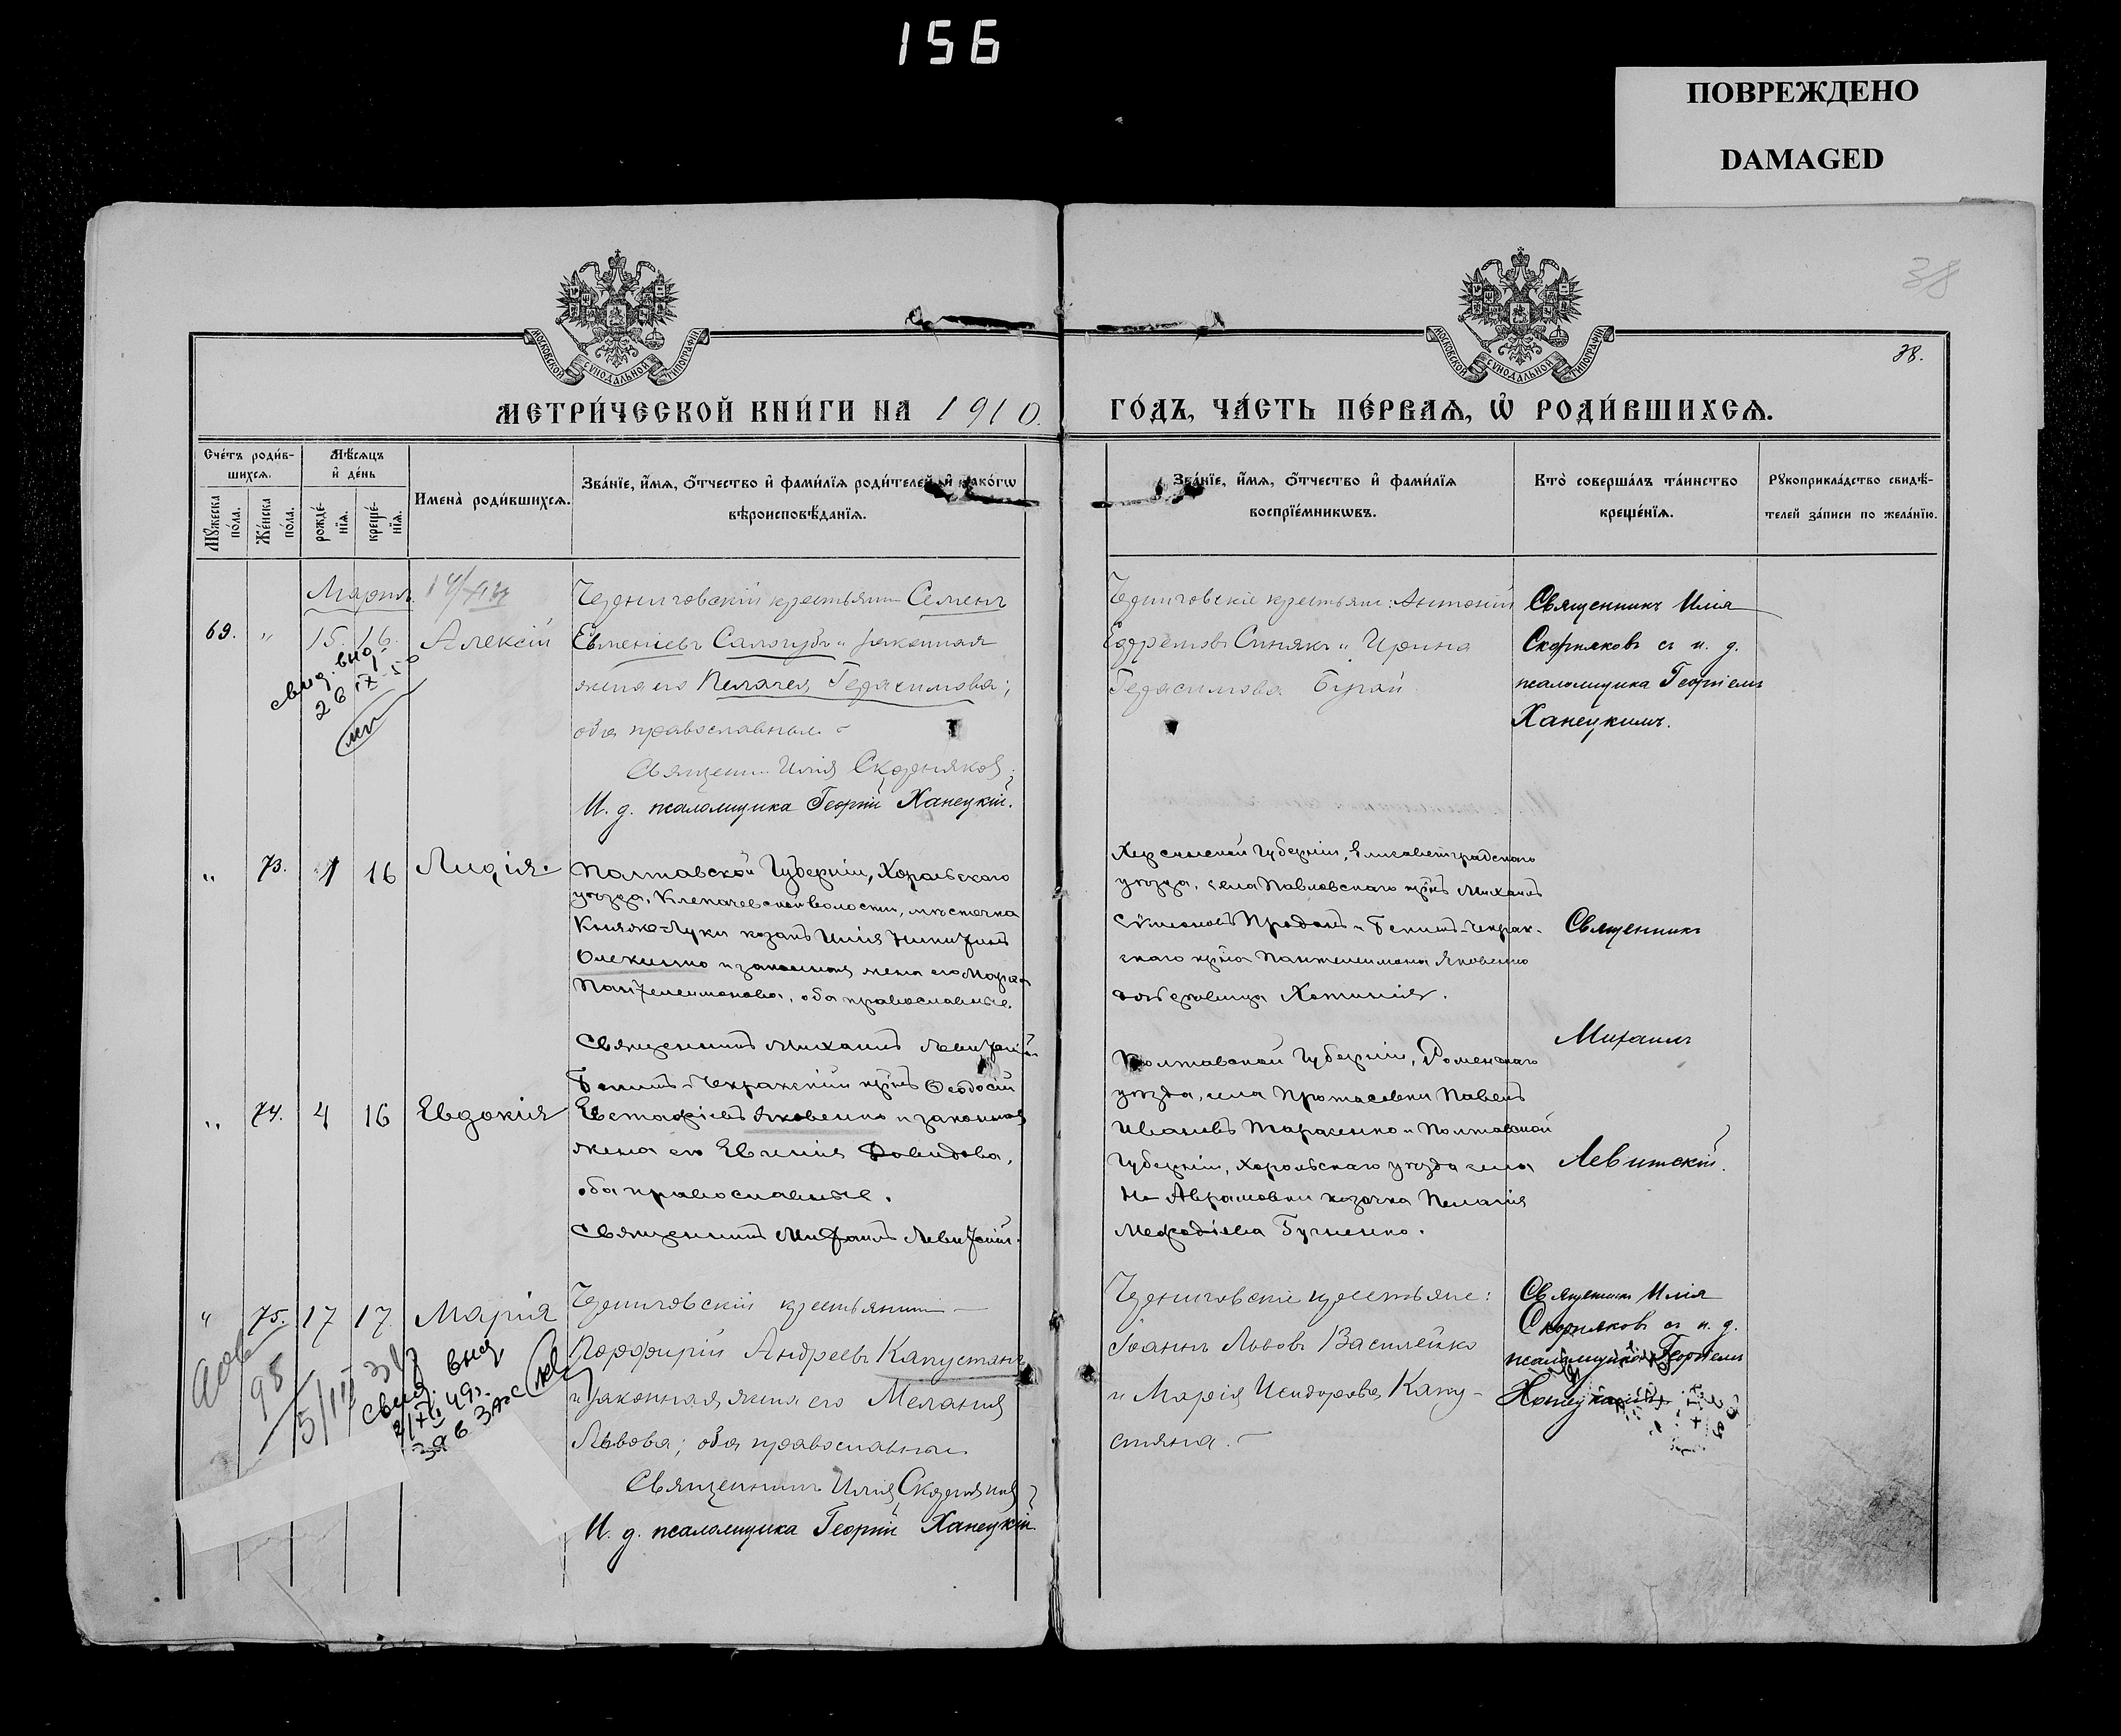 156
ПОВРЕЖДЕНО
DAMAGED
38
38.
МОСКОВСКОЙ СУНОДАЛЬНОЙ ТИПОГРАФІИ
МОСКОВСКОЙ СУНОДАЛЬНОЙ ТИПОГРАФІИ
МЕТРИ́ЧЕСКОЙ КНИ́ГИ НА 1910.
ГО́ДЪ, ЧА́СТЬ ПЕ́РВАѦ, Ѡ҆ РОДИ́ВШИХСѦ.
Сче́тъ роди́в-
шихсѧ.
Мꙋ́жеска
пола.
Же́нска
пола.
Мѣ́сѧцъ
и҆ де́нь
рожде́-
нїѧ.
креще́-
нїѧ.
Имена̀ роди́вшихсѧ.
Зва́нїе, и҆́мѧ, ѻ҆́тчество и҆ фами́лїѧ роди́телей, и҆ како́гѡ
вѣроисповѣ́данїѧ.
Зва́нїе, и҆́мѧ, ѻ҆́тчество и҆ фами́лїѧ
воспрїе́мникѡвъ.
Кто̀ соверша́лъ та́инство
креще́нїѧ.
Рꙋкоприкла́дство свидѣ́-
телей за́писи по жела́нїю.
Мартъ
69. " 15. 16. Алексій
свид. выд.
26 IX-50
Черниговскій крестьянинъ Семенъ
Евменіевъ Сологубъ и законная
жена его Пелагея Герасимова;
оба православные
Священникъ Илія Скорняковъ;
И. д. псаломщика Георгій Ханецкій.
Черниговскіе крестьяне: Антоній
Ефремовъ Синякъ и Ирина
Герасимова Бугай
Священникъ Илія
Скорняковъ съ и. д.
псаломщика Георгіемъ
Ханецкимъ.
" 73. 1 16 Лидія.
Полтавской Губерніи, Хорольскаго
уѣзда, волости, мѣстечка
Княжо-Луки козакъ Илія
Олекиенко и законная жена его Марѳа
Пантелеимонова, оба православные.
Священникъ Михаилъ Левитскій
Херсонской Губерніи, Елисаветградскаго
уѣзда, села Павловскаго крнъ Михаилъ
Сѵмеоновъ Проданъ и
скаго крнина Пантелеимона Яковенко
Священникъ
Михаилъ
Левитскій.
" 74. 4 16 Евдокія
крнъ Ѳеодосій
Евстафіевъ Яковенко и законная
жена его Евгенія Давидова,
оба православные.
Священникъ Михаилъ Левитскій.
Полтавской Губерніи, Роменскаго
уѣзда, села Протасовки Павелъ
Ивановъ Тарасенко и Полтавской
Губерніи, Хорольскаго уѣзда села
Ново-Аврамовки козачка Пелагія
Меѳодіева
" 75. 17 17. Марія
98
5/III 31
свид. выд
49г.
ЗАГС
Черниговскій крестьянинъ
Порфирій Андреевъ Капустянъ
и законная жена его Меланія
Львова; оба православные
Священникъ Илія Скорняковъ
И. д. псаломщика Георгій Ханецкій
Черниговскіе крестьяне:
Іоаннъ Львовъ Василейко
и Марія Исидорова Капу-
стяна.
Священникъ Илія
Скорняковъ съ и. д.
псаломщика Георгіемъ
Ханецкимъ